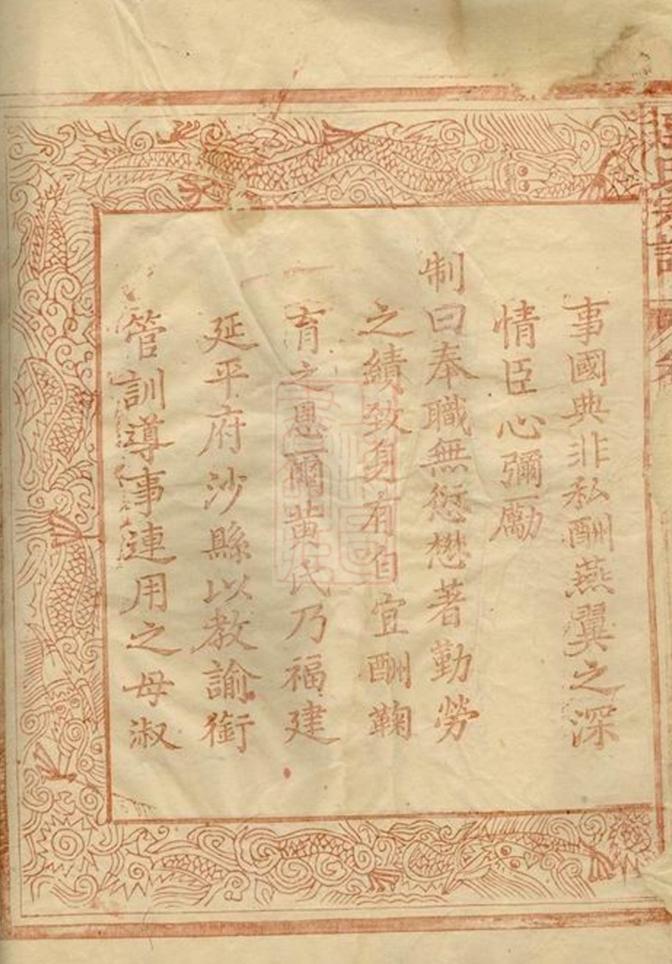 事國典非私酬燕翼之深
情臣心彌勵
制曰奉職無愆懋著勤勞
之績致身有自宜酬鞠
育之恩爾黄氏乃福建
延平府沙縣以教諭銜
管訓導事連用之母淑